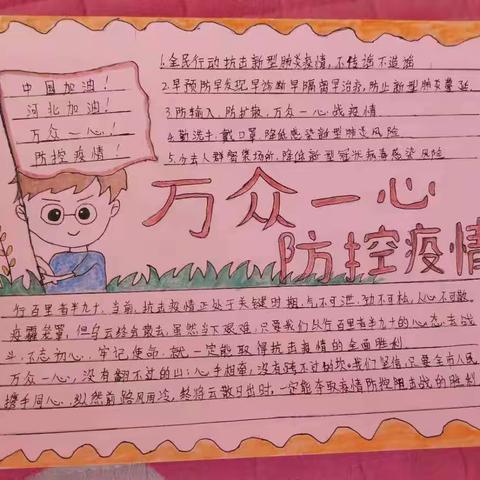 中国加油！
河北加油！
万众一心！
防控疫情！
1.全民行动抗击新型肺炎疫情，不传谣不造谣
2.早预防早发现早诊断早隔离早治疗，防止新型肺炎蔓延
3.防输入，防扩散，万众一心战疫情
4.勤洗手，戴口罩，降低感染新型肺炎风险
5.少去人群密集场所，降低新型冠状病毒感染风险
万众一心
防控疫情
行百里者半九十，当前，抗击疫情正处于关键时期，气不可泄，劲不可松，人心不可散。
疫霾笼罩，但乌云终会散去，虽然当下艰难，只要我们以行百里者半九十的心态去战
斗，不忘初心，牢记使命，就一定能取得抗击疫情的全面胜利
万众一心，没有翻不过的山；心手相牵，没有跨不过的坎。我们坚信，只要全市人民
携手同心，纵然前路风雨浓，终将云散日出时，一定能夺取疫情防控阻击战的胜利